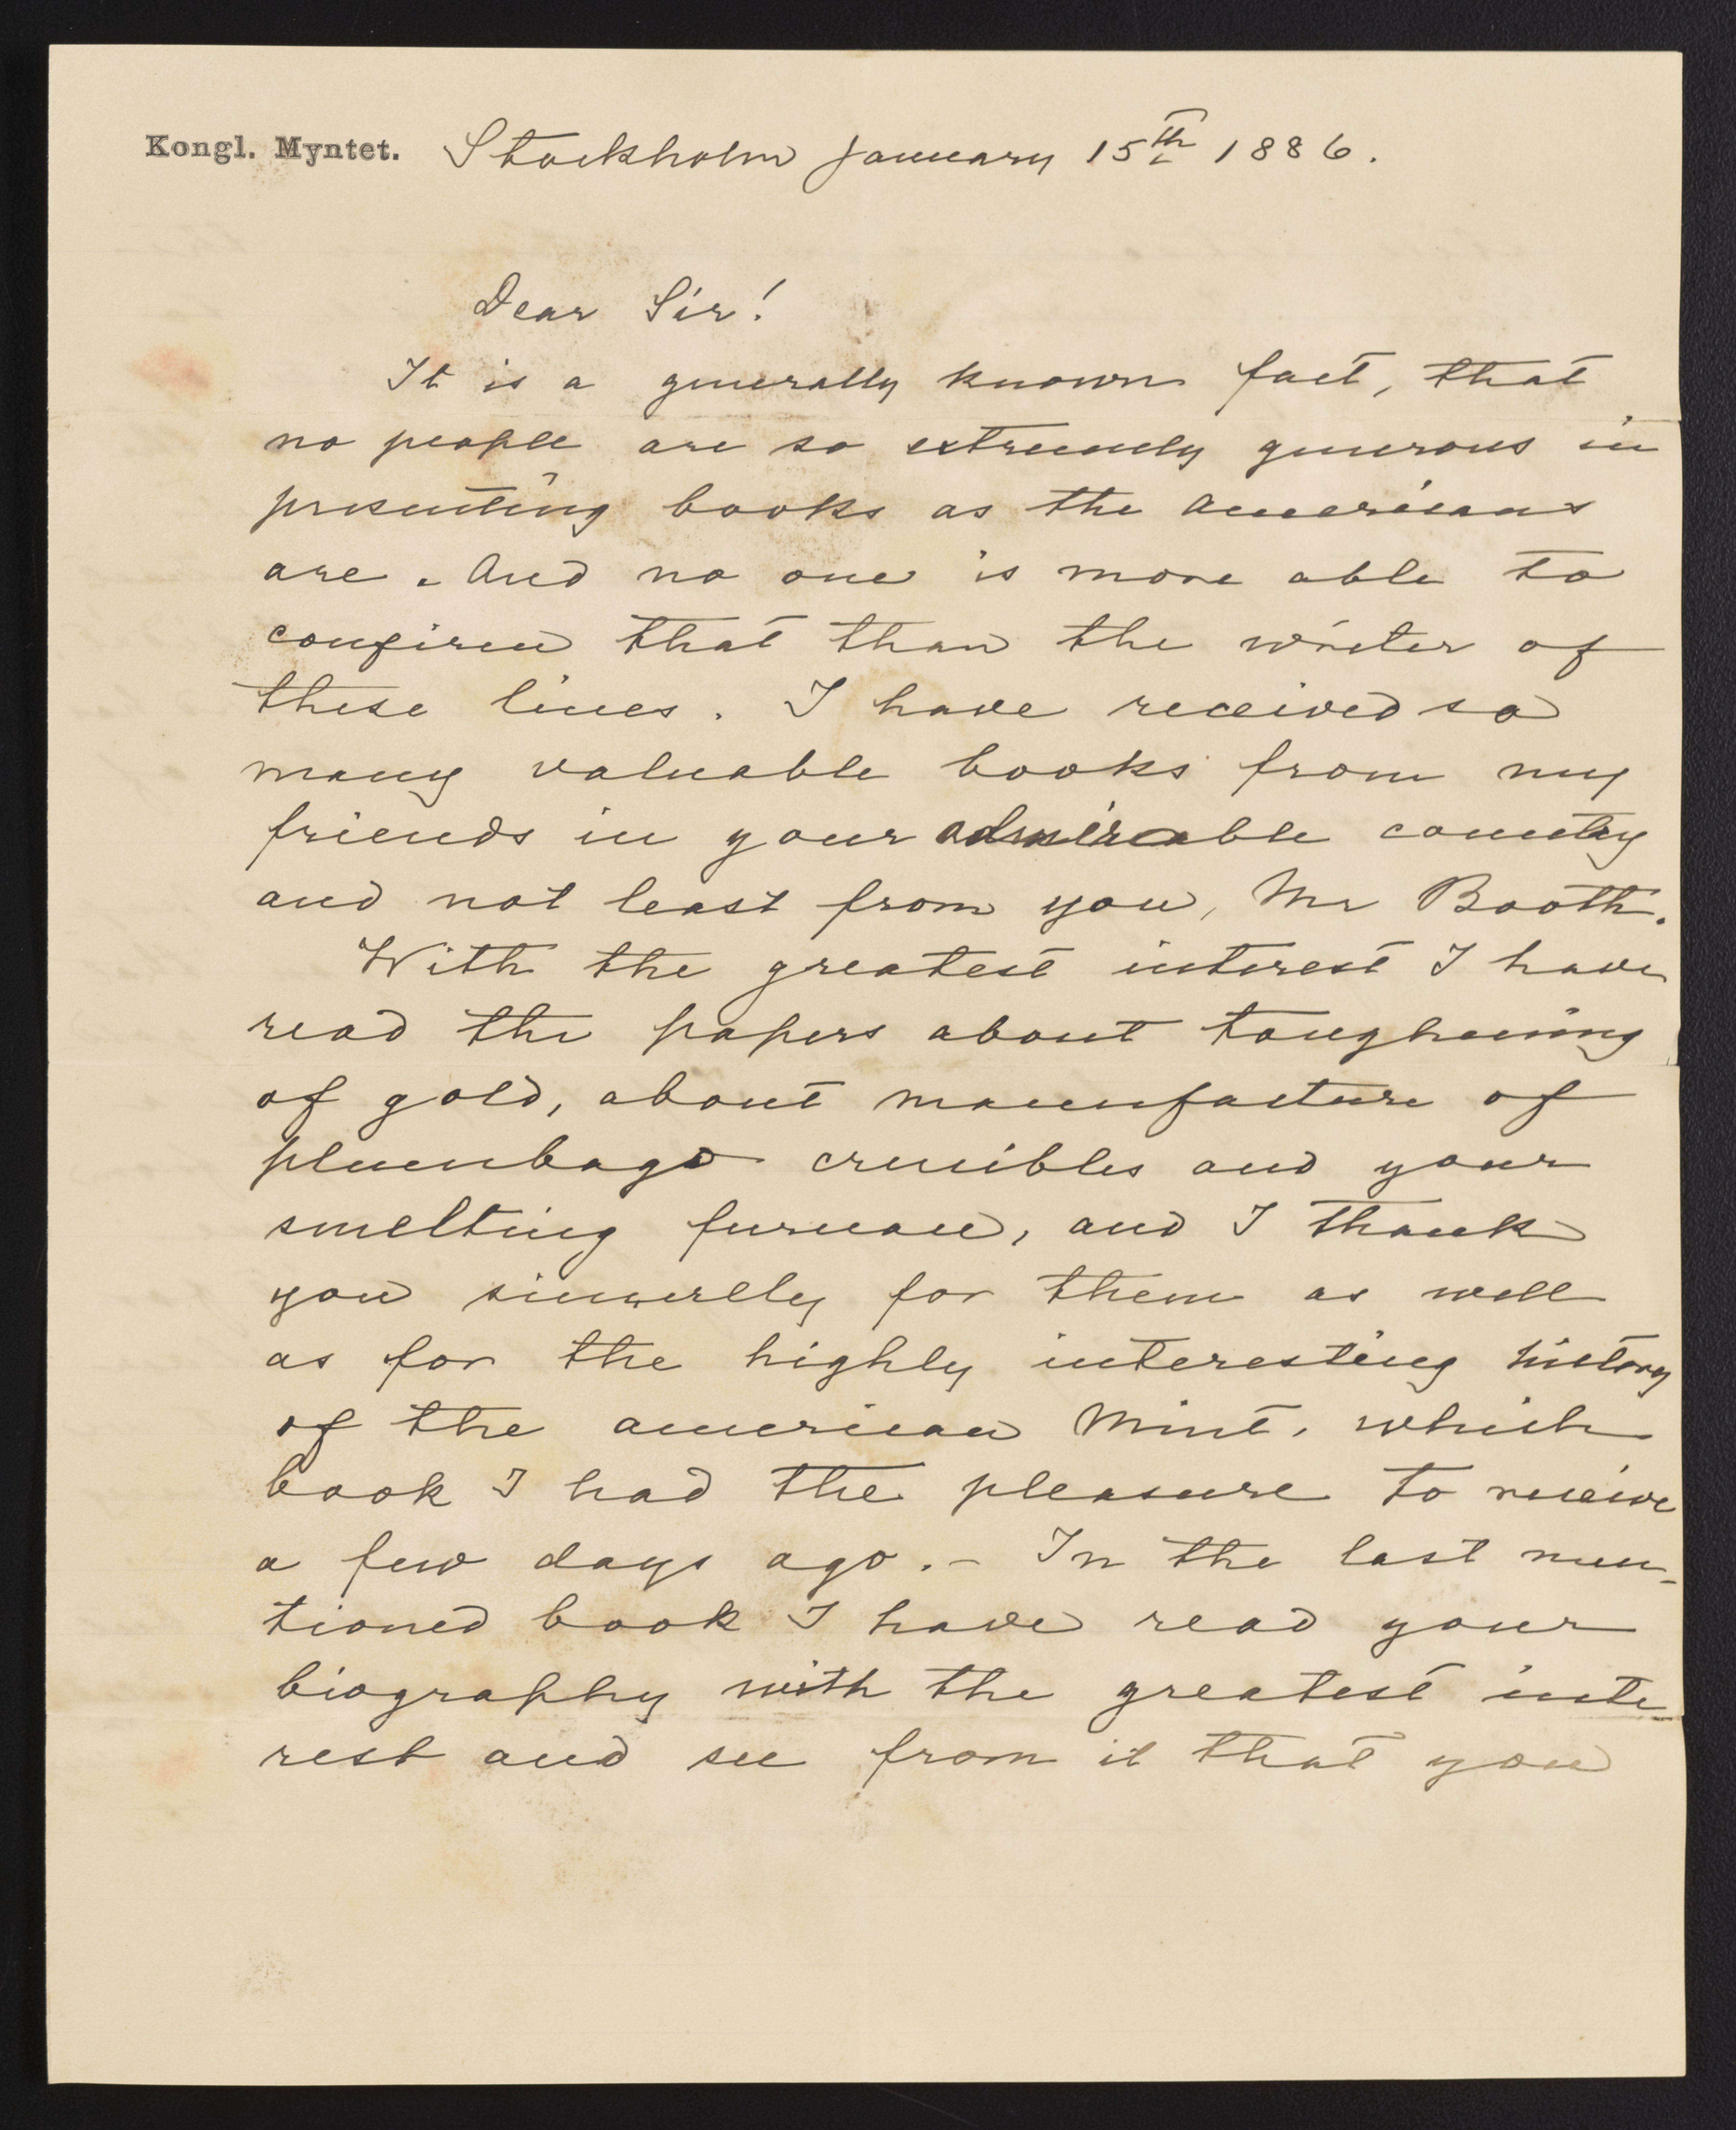 Kongl. Myntet. Stockholm January 15th 1886.
Dear Sir!
It is a generally known fact, that
no people are so extremely generous in
presenting books as the americans
are. And no one is more able to
confirm that than the writer of
these lines. I have received so
many valuable books from my
friends in your admirable country
and not least from you, Mr Booth.
With the greatest interest I have
read the papers about toughening
of gold, about manufacture of
plumbago crucibles and your
smelting furnace, and I thank
you sincerelly for them as well
as for the highly interesting history
of the american Mint, which
book I had the pleasure to receive
a few days ago. - In the last men-
tioned book I have read your
biography with the greatest inte-
rest and see from it that you